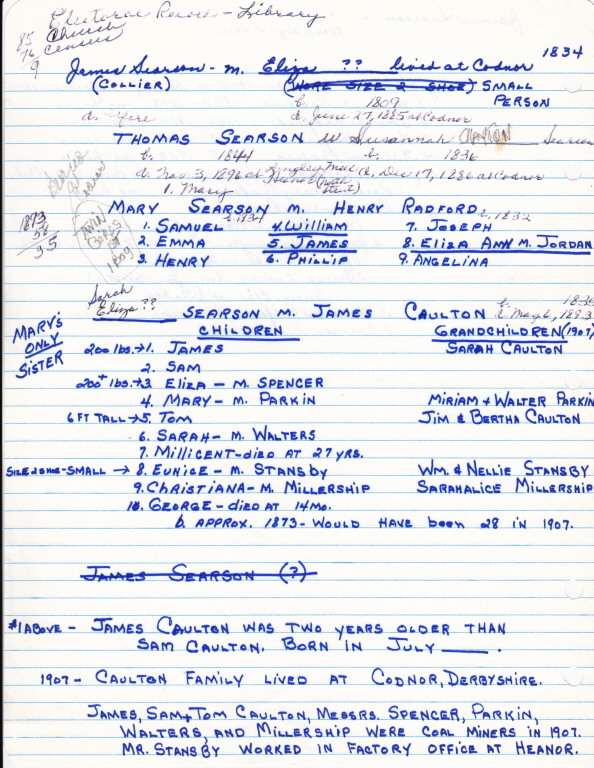 Electoral Records - Library
85 Church
76 Census
9
1834
James Searson - m. Eliza ?? lived at Codnor
(Collier) (Wore size 2 shoe) Small Person
b. 1809
d. d. June 27, 1885 at Codnor
Thomas Searson w Susannah Clayton Searson
b. 1844 b. 1836
d. Nov 3, 1896 at d. Dec 17, 1886 at Codnor
1. Mary
Mary Searson m. Henry Radford b. 1832
b. 1834
1873
54
35
Twin Boys 1 Boy
1. Samuel 4. William 7. Joseph
2. Emma 5. James 8. Eliza Ann m. Jordan
3. Henry 6. Phillip 9. Angelina
Sarah
Eliza ?? Searson m. James Caulton b.
d. May 6, 1893
Mary's Only Sister
Children Grandchildren (1907)
200 lbs. → 1. James Sarah Caulton
2. Sam
200+ lbs. → 3. Eliza - m. Spencer
4. Mary - m. Parkin Miriam & Walter Parkin
6 ft tall → 5. Tom Jim & Bertha Caulton
6. Sarah - m. Walters
7. Millicent - died at 27 yrs.
Size 2 shoe - small → 8. Eunice - m. Stansby Wm. & Nellie Stansby
9. Christiana - m. Millership Sarahalice Millership
10. George - died at 14 mo.
b. approx. 1873 - would have been 28 in 1907.
James Searson (?)
#1 above - James Caulton was two years older than
Sam Caulton. Born in July ____.
1907 - Caulton family lived at Codnor, Derbyshire.
James, Sam & Tom Caulton, Messrs. Spencer, Parkin,
Walters, and Millership were coal miners in 1907.
Mr. Stansby worked in factory office at Heanor.